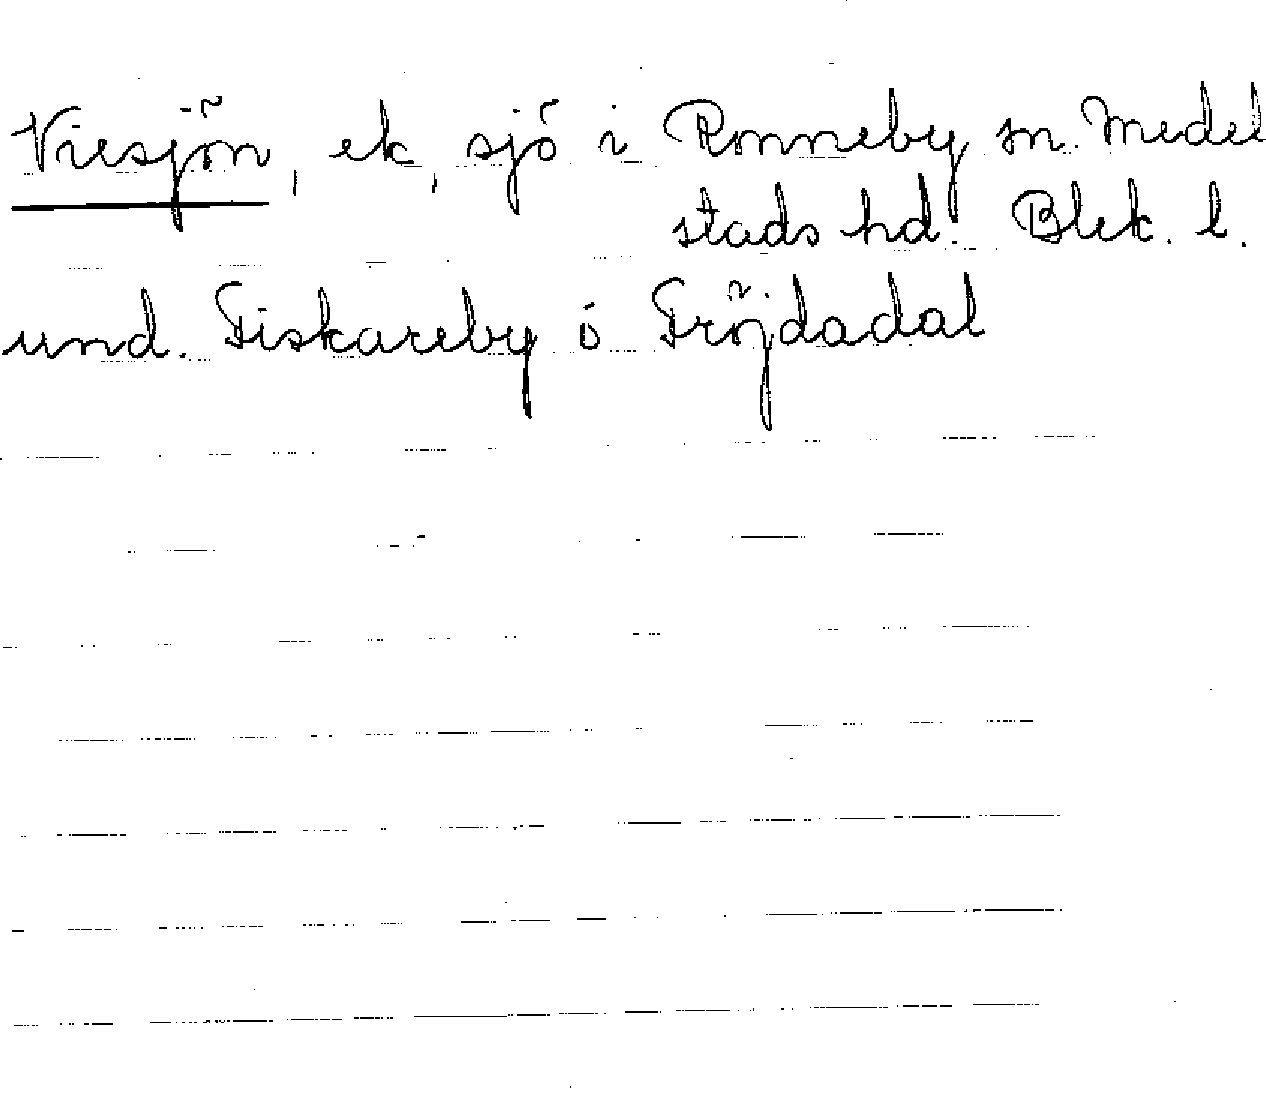 Viesjön, ek, sjö i Ronneby sn. Medel
stads hd. Blek. l.
und. Fiskareby o Fröjdadal